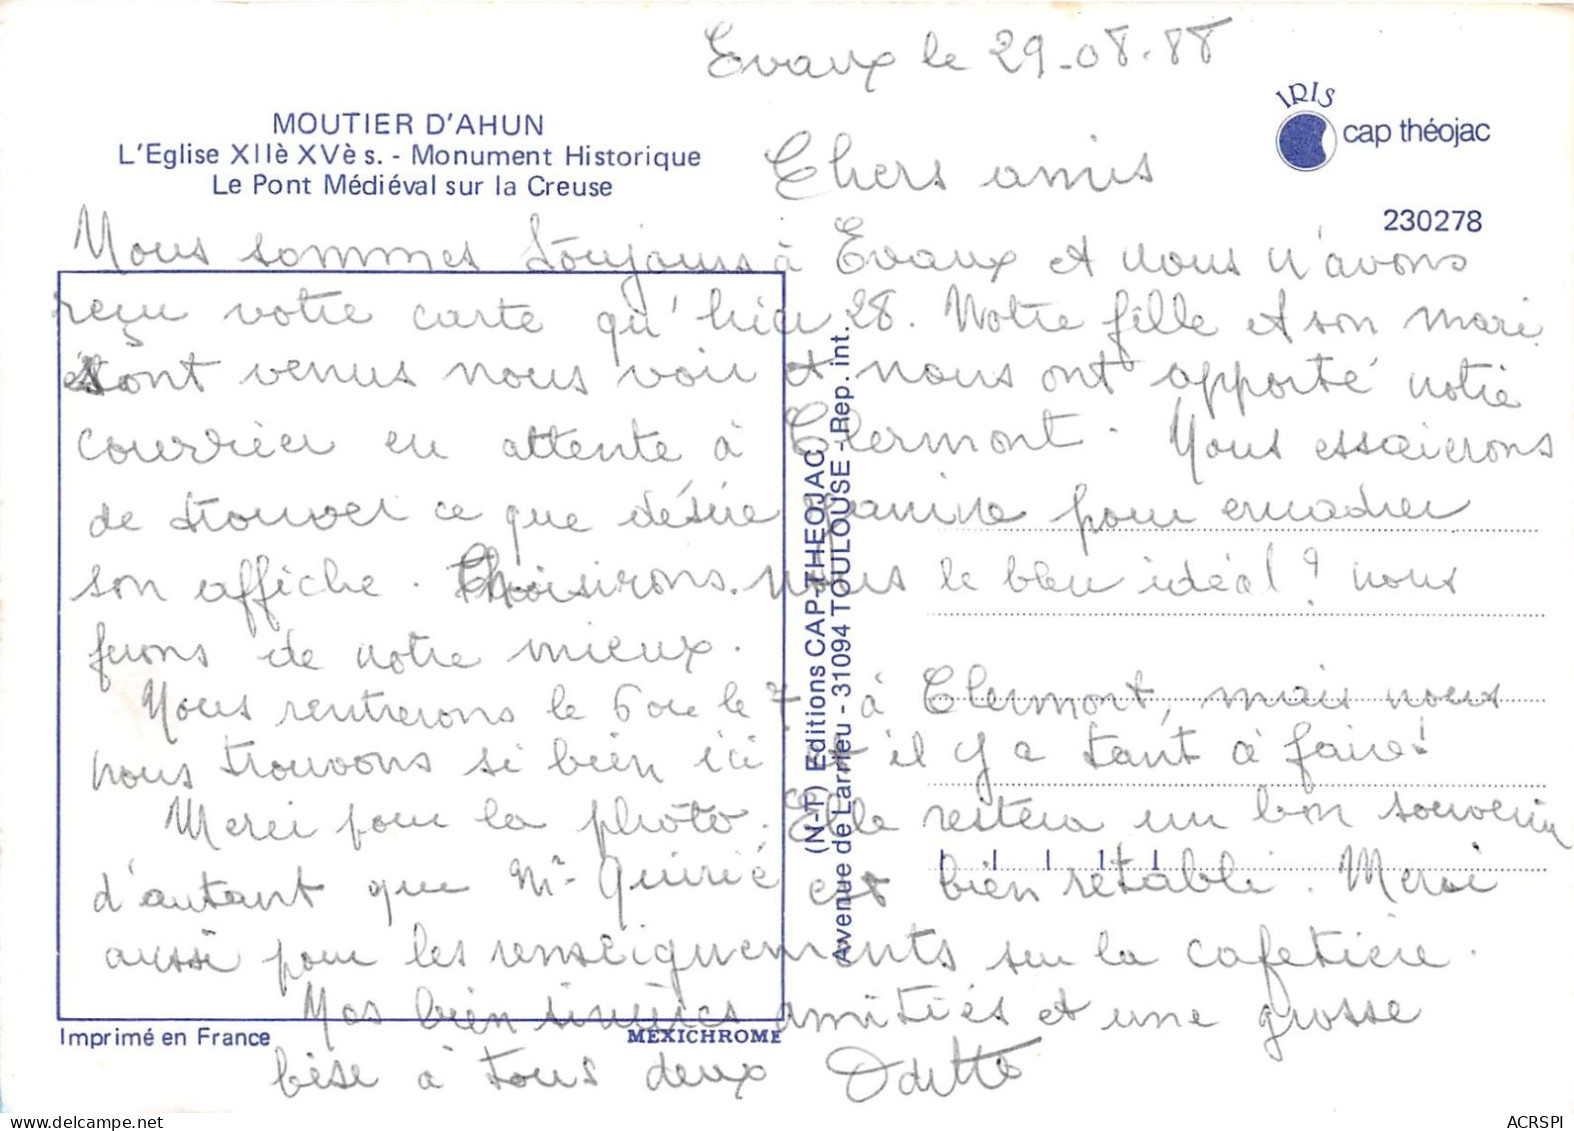 Evaux le 29-08-88
IRIS
cap théojac
MOUTIER D'AHUN
L'Eglise XIIè XVè s. - Monument Historique
Le Pont Médiéval sur la Creuse
230278
Chers amis
Nous sommes toujours à Evaux et nous n'avons
reçu votre carte qu'hier 28. Notre fille et son mari
sont venus nous voir et nous ont apporté notre
courrier en attente à Clermont. Nous essaierons
de trouver ce que désire Janine pour encadrer
son affiche. Choisirons-nous le bleu idéal? nous
ferons de notre mieux.
Nous rentrerons le 6 ou le 7 à Clermont, mais nous
nous trouvons si bien ici et il y a tant à faire!
Merci pour la photo. Elle restera un bon souvenir
d'autant que Mr est bien rétabli. Merci
aussi pour les renseignements sur la cafetière.
Nos bien sincères amitiés et une grosse
bise à tous deux Odette
(N-T) Editions CAP-THEOJAC
Avenue de Larrieu - 31094 TOULOUSE - Rep. int.
Imprimé en France
MEXICHROME
ACRSPI